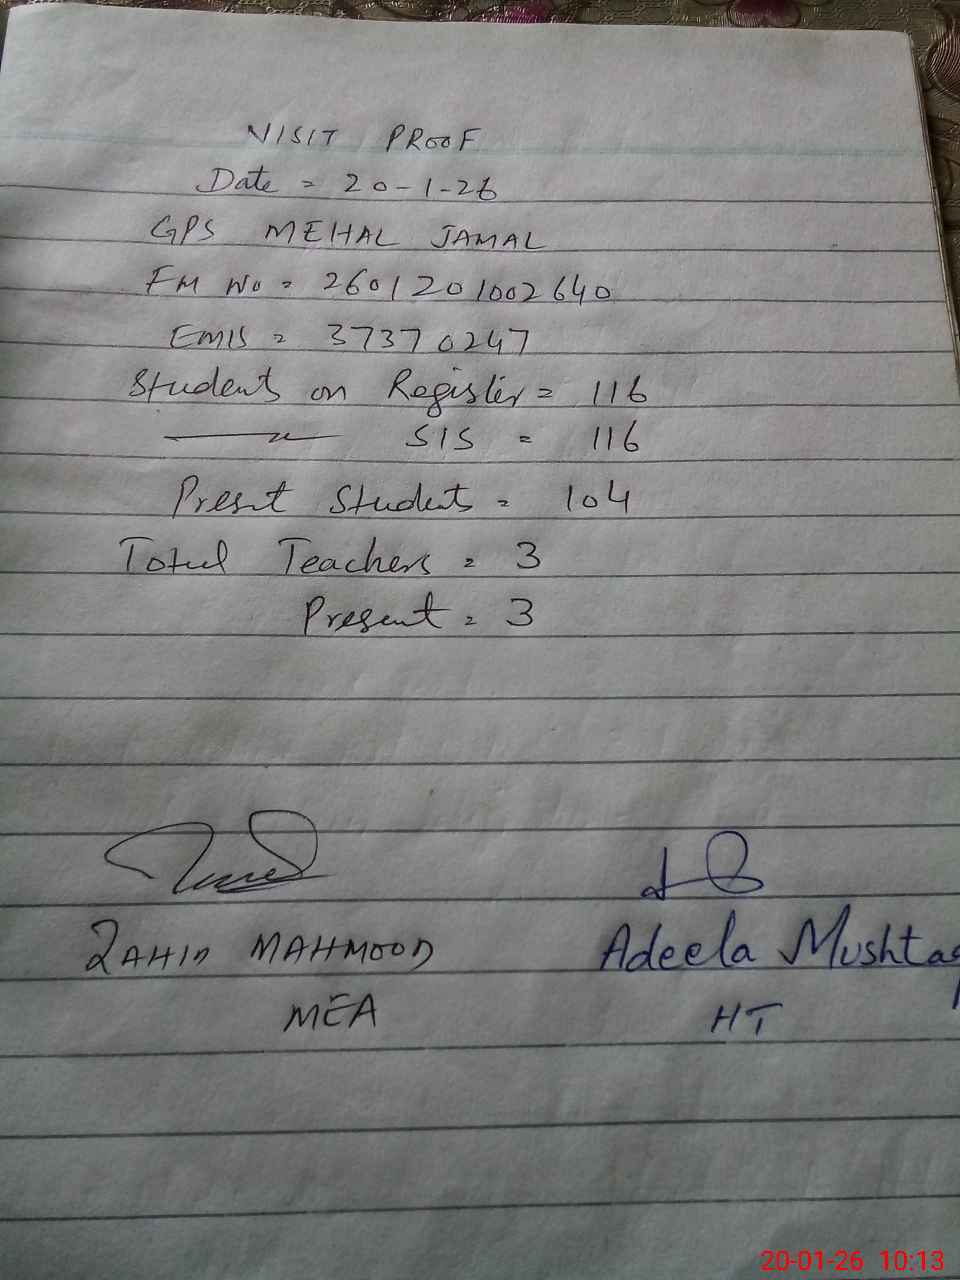 VISIT PROOF
Date = 20-1-26
GPS MEHAL JAMAL
FM No = 2601201002640
EMIS = 37370247
Students on Register = 116
—〃— SIS = 116
Presnt Students = 104
Total Teachers = 3
Present = 3
ZAHID MAHMOOD
Adeela Mushtaq
MEA
HT
20-01-26 10:13